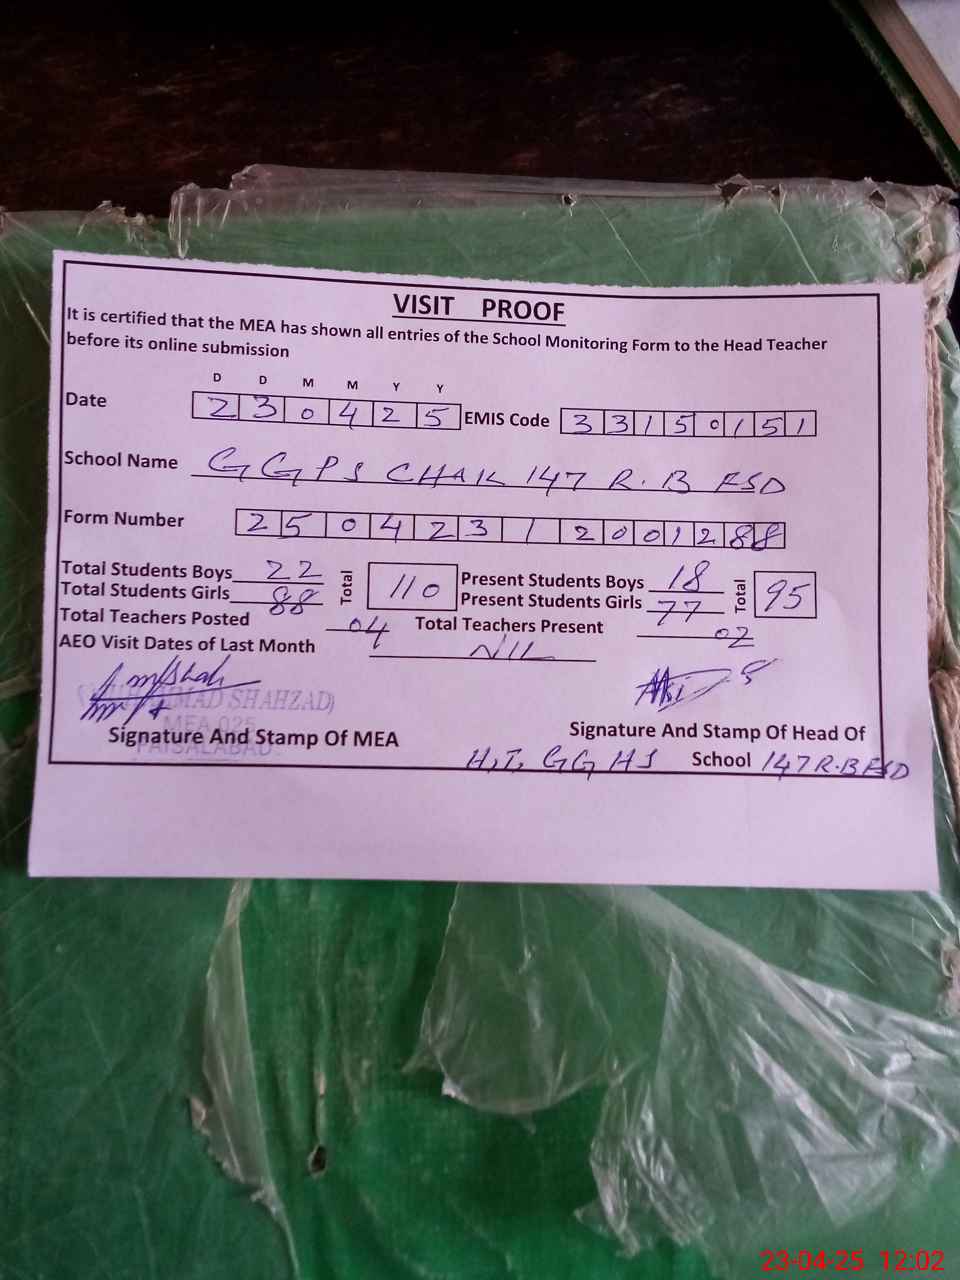 VISIT PROOF
It is certified that the MEA has shown all entries of the School Monitoring Form to the Head Teacher
before its online submission
D D M M Y Y
Date 2 3 0 4 2 5 EMIS Code 3 3 1 5 0 1 5 1
School Name G G P S CHAK 147 R.B FSD
Form Number 2 5 0 4 2 3 1 2 0 0 1 2 8 8
Total Students Boys 22 Total 110 Present Students Boys 18 Total 95
Total Students Girls 88 Present Students Girls 77
Total Teachers Posted 04 Total Teachers Present 02
AEO Visit Dates of Last Month NIL
(MUHAMMAD SHAHZAD)
MEA 025
FAISALABAD
Signature And Stamp Of MEA Signature And Stamp Of Head Of
H.T. GG HS School 147 R.B FSD
23-04-25 12:02